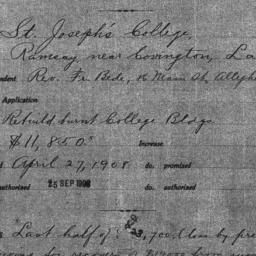 St. Joseph's College,
Ramsay near Covington, La
ndent Rev. Fr. Bede, 16 Main St, Allegh
Application
Rebuild burnt College Bldgs.
$11,850. Increase
April 27, 1908 do. promised
authorized 25 SEP 1908 do. authorized
"Last half of $23,700 loss by